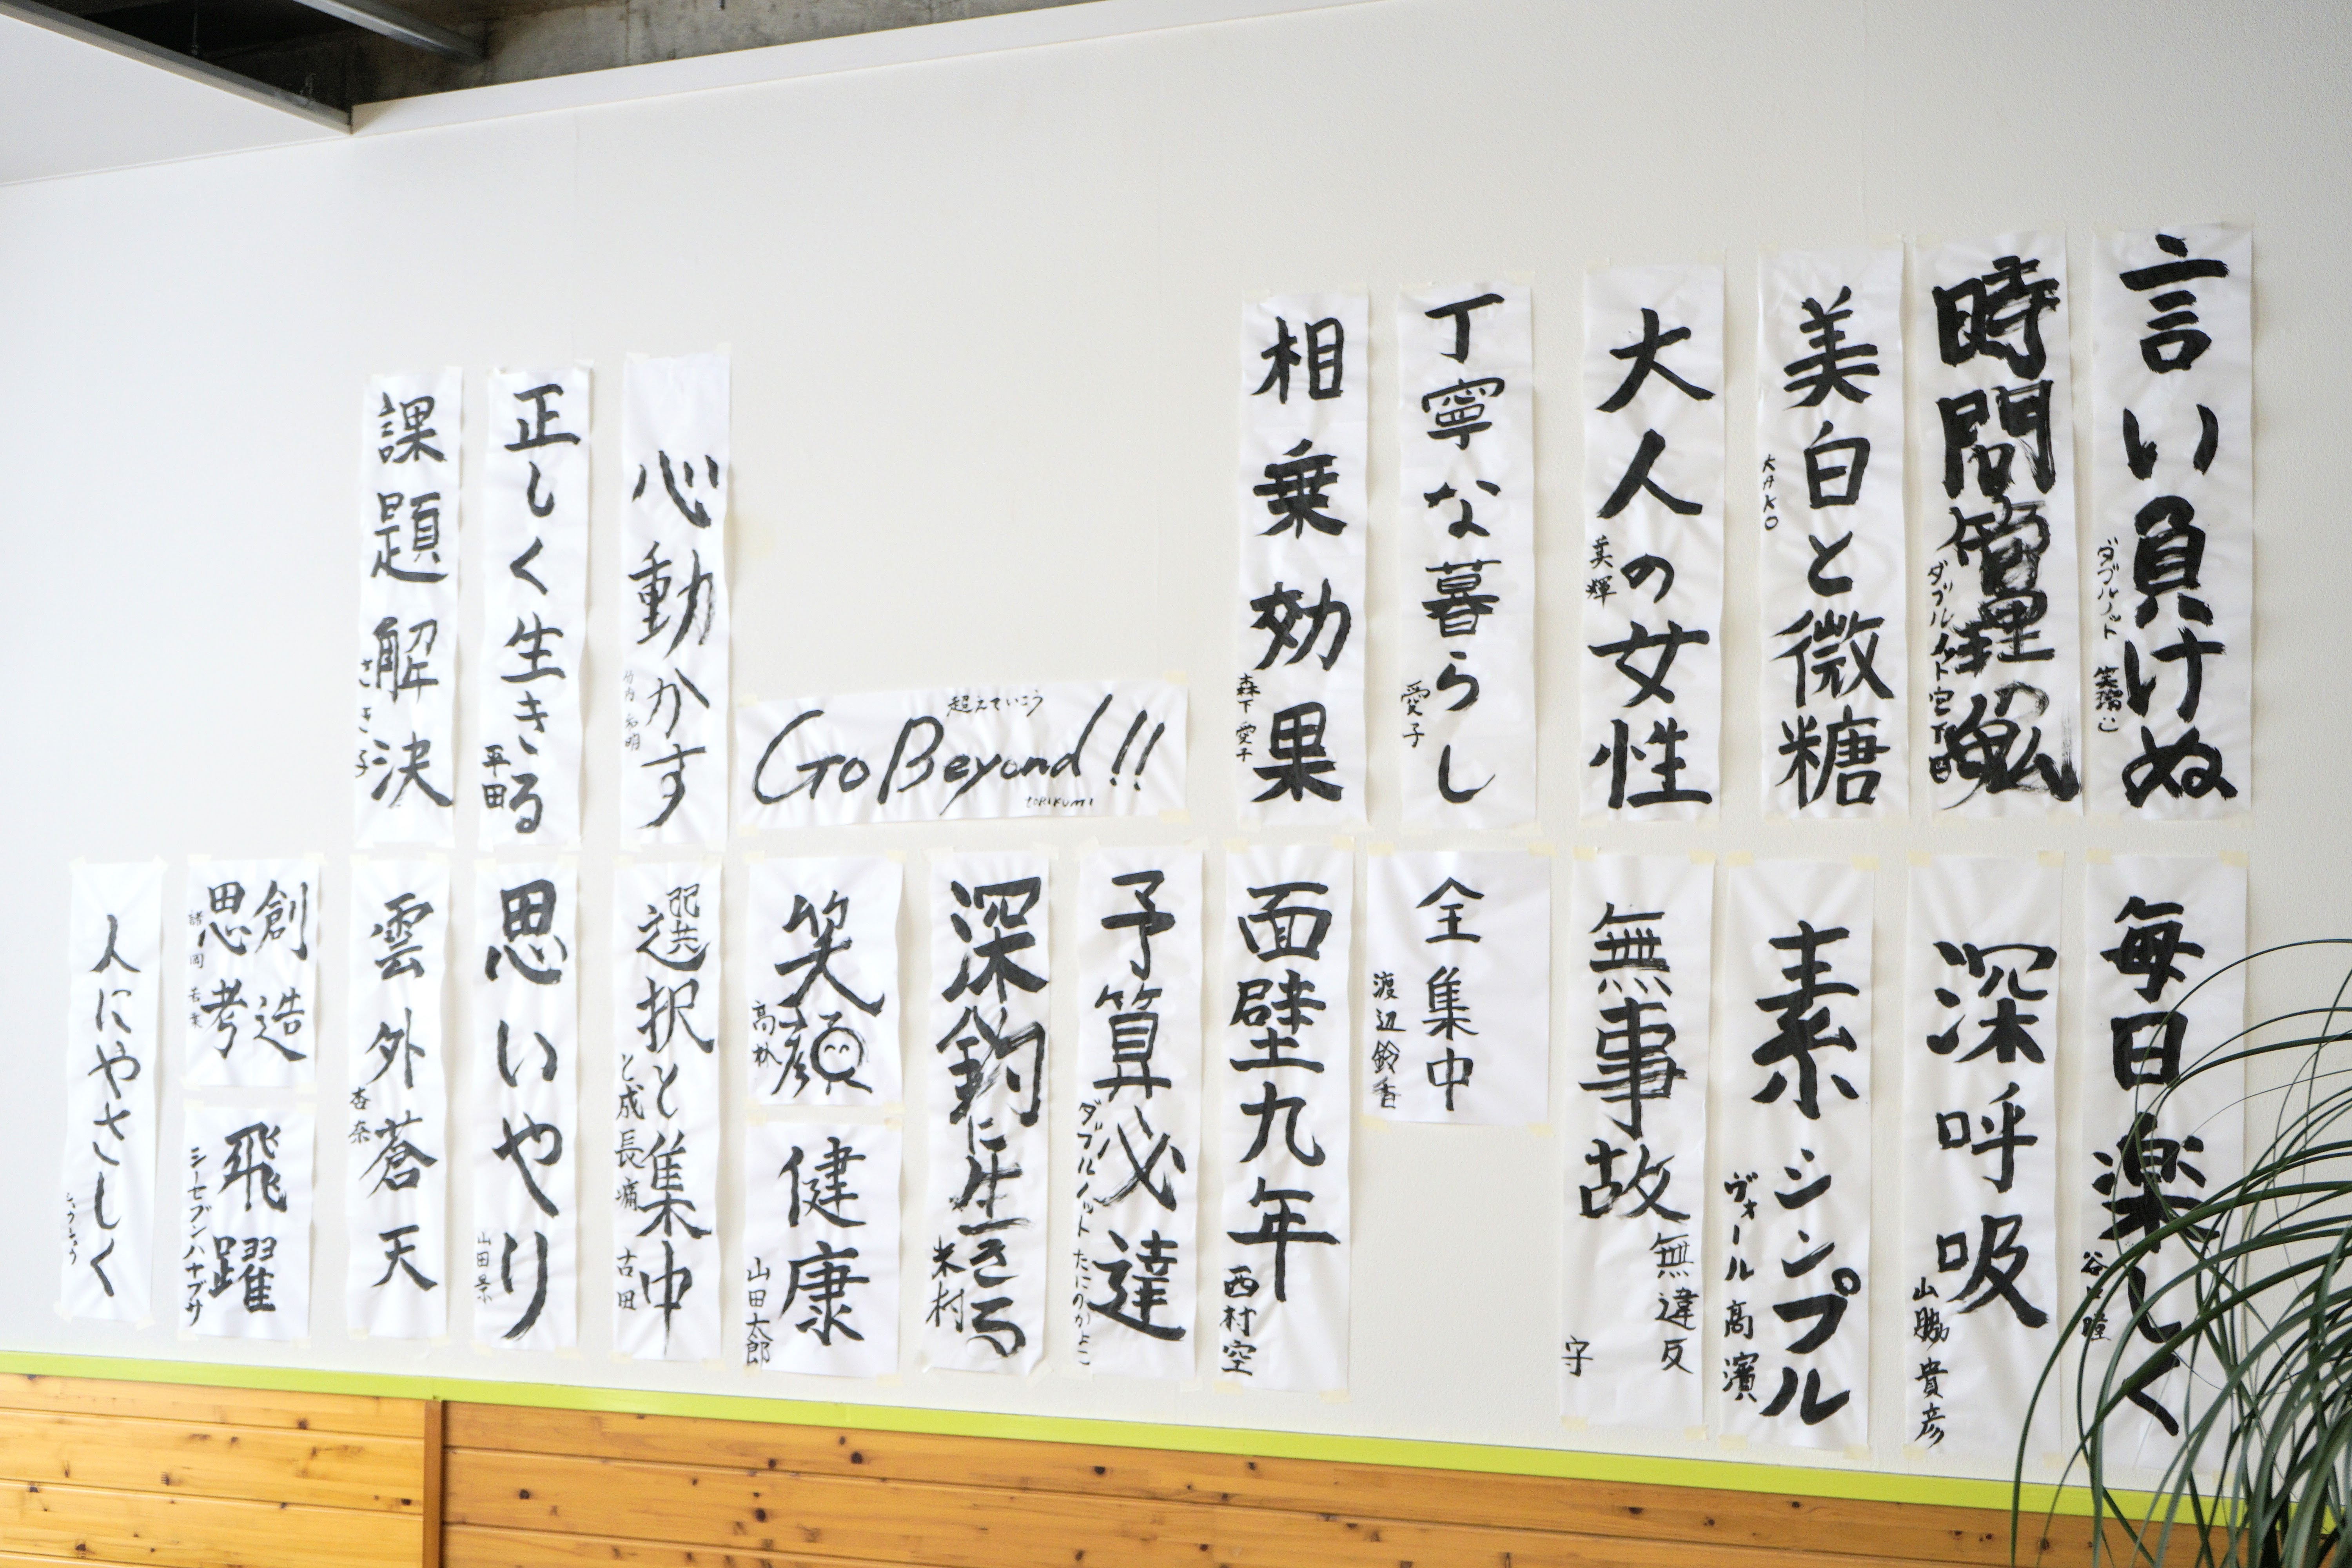 言い負けぬ
ダブルノット
時間管理
ダブルノット宮下
美白と微糖
KAKO
大人の女性
美輝
丁寧な暮らし
愛子
相乗効果
森下愛子
超えていこう
Go Beyond!!
torikumi
心動かす
竹内
正しく生きる
平田
課題解決
ささき子
毎日楽しく
深呼吸
山脇貴彦
素シンプル
ヴォール高濱
無事故
無違反
守
全集中
渡辺鈴香
面壁九年
西村空
予算必達
ダブルノットたにのかよこ
深鈎に生きる
米村
笑顔
健康
山田太郎
選択と集中
と成長痛
古田
思いやり
山田景
雲外蒼天
杏奈
創造
思考
飛躍
シーセブンハヤブサ
人にやさしく